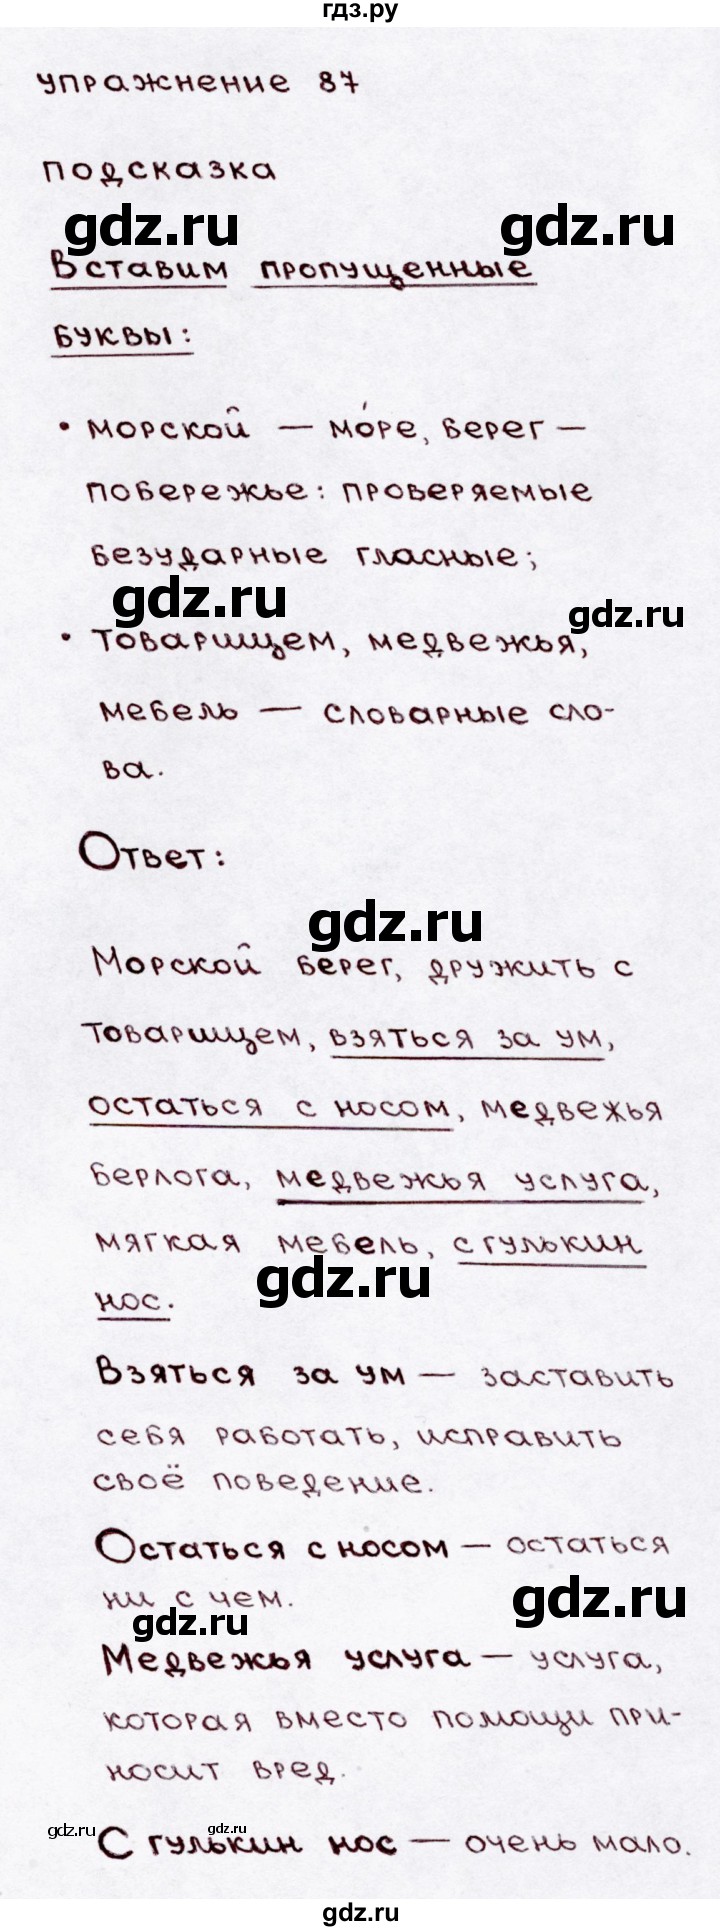 гдз.ру
упражнение 87
подсказка
gdz.ru gdz.ru
Вставим пропущенные
буквы:
• морской — мо́ре, берег —
побережье: проверяемые
безударные гласные;
gdz.ru
gdz.ru
• товарищем, медвежья,
мебель — словарные сло-
ва.
Ответ:
gdz.ru
Морской берег, дружить с
товарищем, взяться за ум,
остаться с носом, медвежья
берлога, медвежья услуга,
мягкая мебель, с гулькин
gdz.ru
нос.
Взяться за ум — заставить
себя работать, исправить
своё поведение.
Остаться с носом — остаться
ни с чем.
gdz.ru
gdz.ru
Медвежья услуга — услуга,
которая вместо помощи при-
носит вред.
gdz.ru gdz.ru
С гулькин нос — очень мало.
gdz.ru